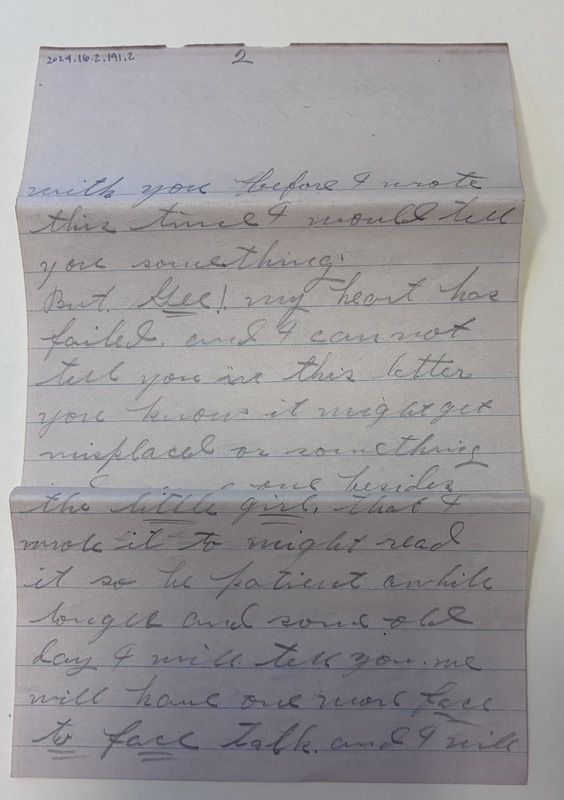 2024.16.2.191.2
2
with you before I wrote
this time I would tell
you something.
But. Gee! my heart has
failed. and I can not
tell you in this letter
you know it might get
misplaced or something
one besides
the little girl, that I
wrote it to might read
it so be patient awhile
longer and some old
day I will tell you. we
will have one more face
to face talk. and I will